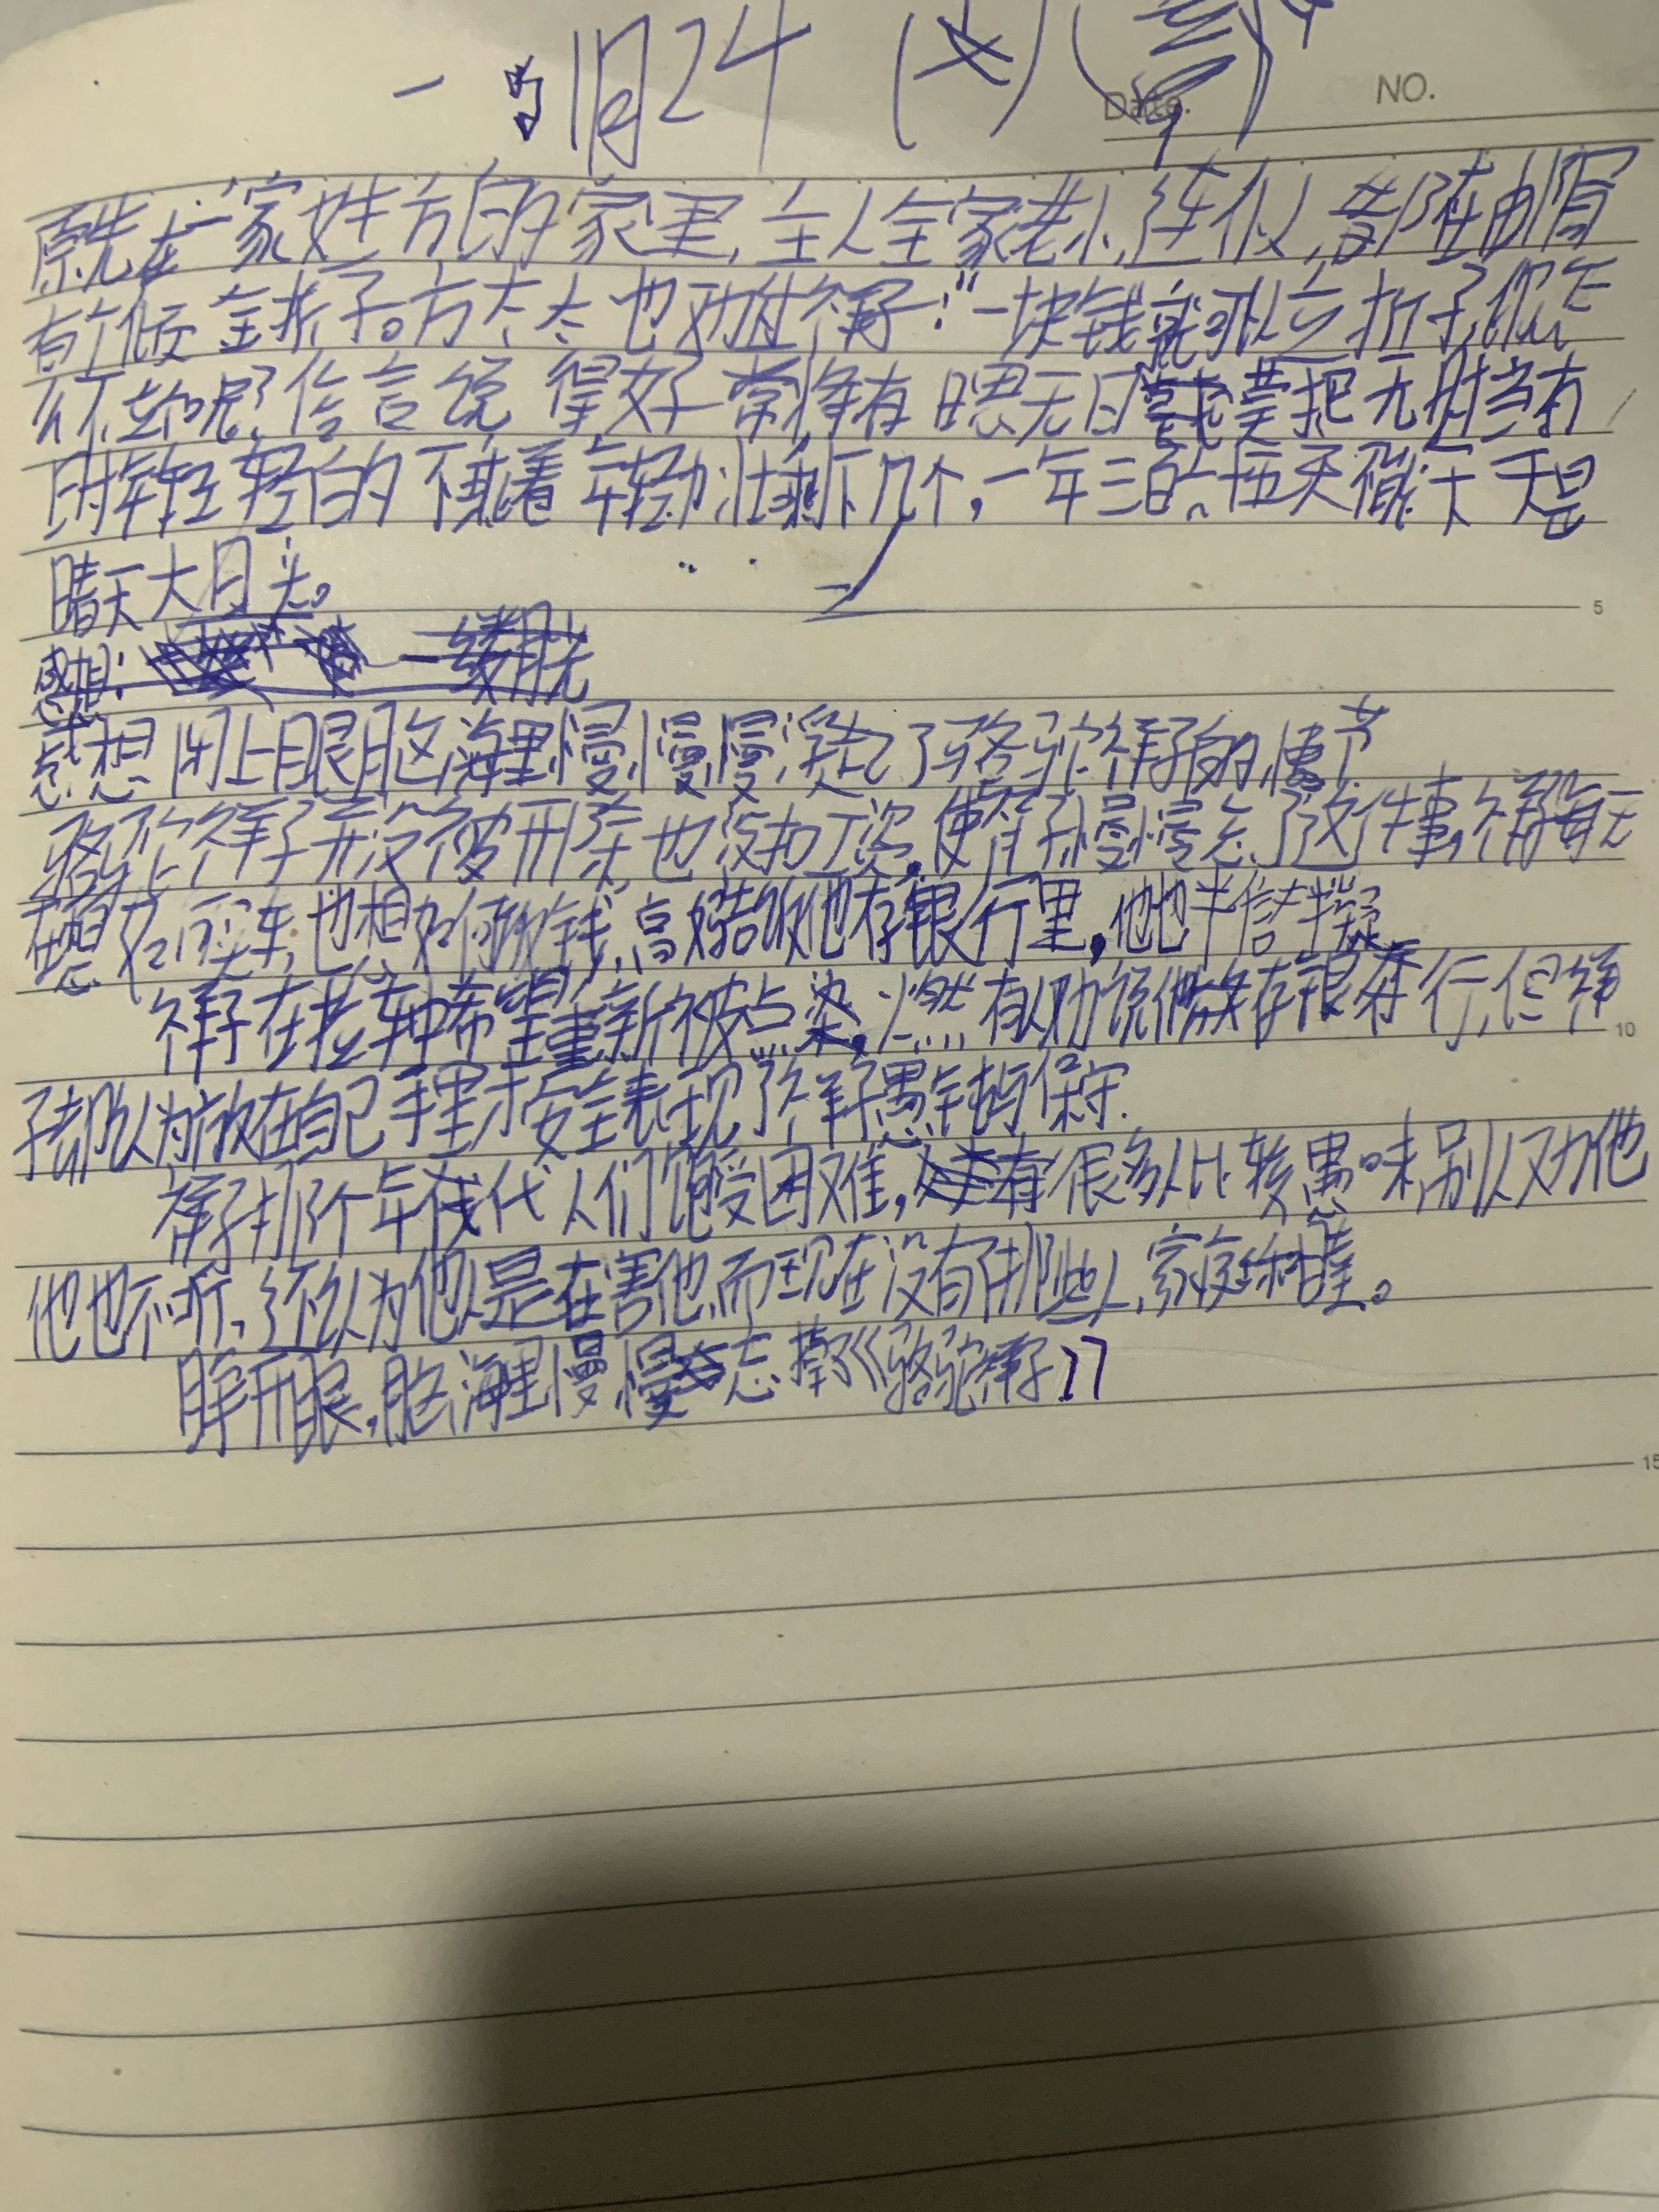 1月24
Date. NO.
原先在一家姓方的家里,主人全家老小,连仆人,都在邮局
有个储金折子。方太太也劝过祥子:“一块钱就可以立折子,你怎
么不立呢?俗言说得好常将有日思无日莫把无时当有
时年轻轻的不乘着年轻力壮剩下几个,一年三百六十五天不能天天是
晴天大日头。
5
感想: 一缕月光
感想闭上眼脑海里慢慢慢慢浮起了骆驼祥子的情节
骆驼祥子并没被开除也没扣工资,使祥子慢慢忘了这件事,祥子每天
在想买车,也想如何攒钱,高妈告诉他存银行里,他也半信半疑
祥子在拉车中希望重新被点染,燃有人劝说他去存银行,但祥
10
子却认为放在自己手里才安全表现了祥子愚钝与保守.
祥子那个年代人们饱受困难,有很多人比较愚味,别人对他
他也不听,还以为他人是在害他,而现在没有那些人,家庭和睦。
睁开眼,脑海里慢慢忘掉了《骆驼祥子》
15